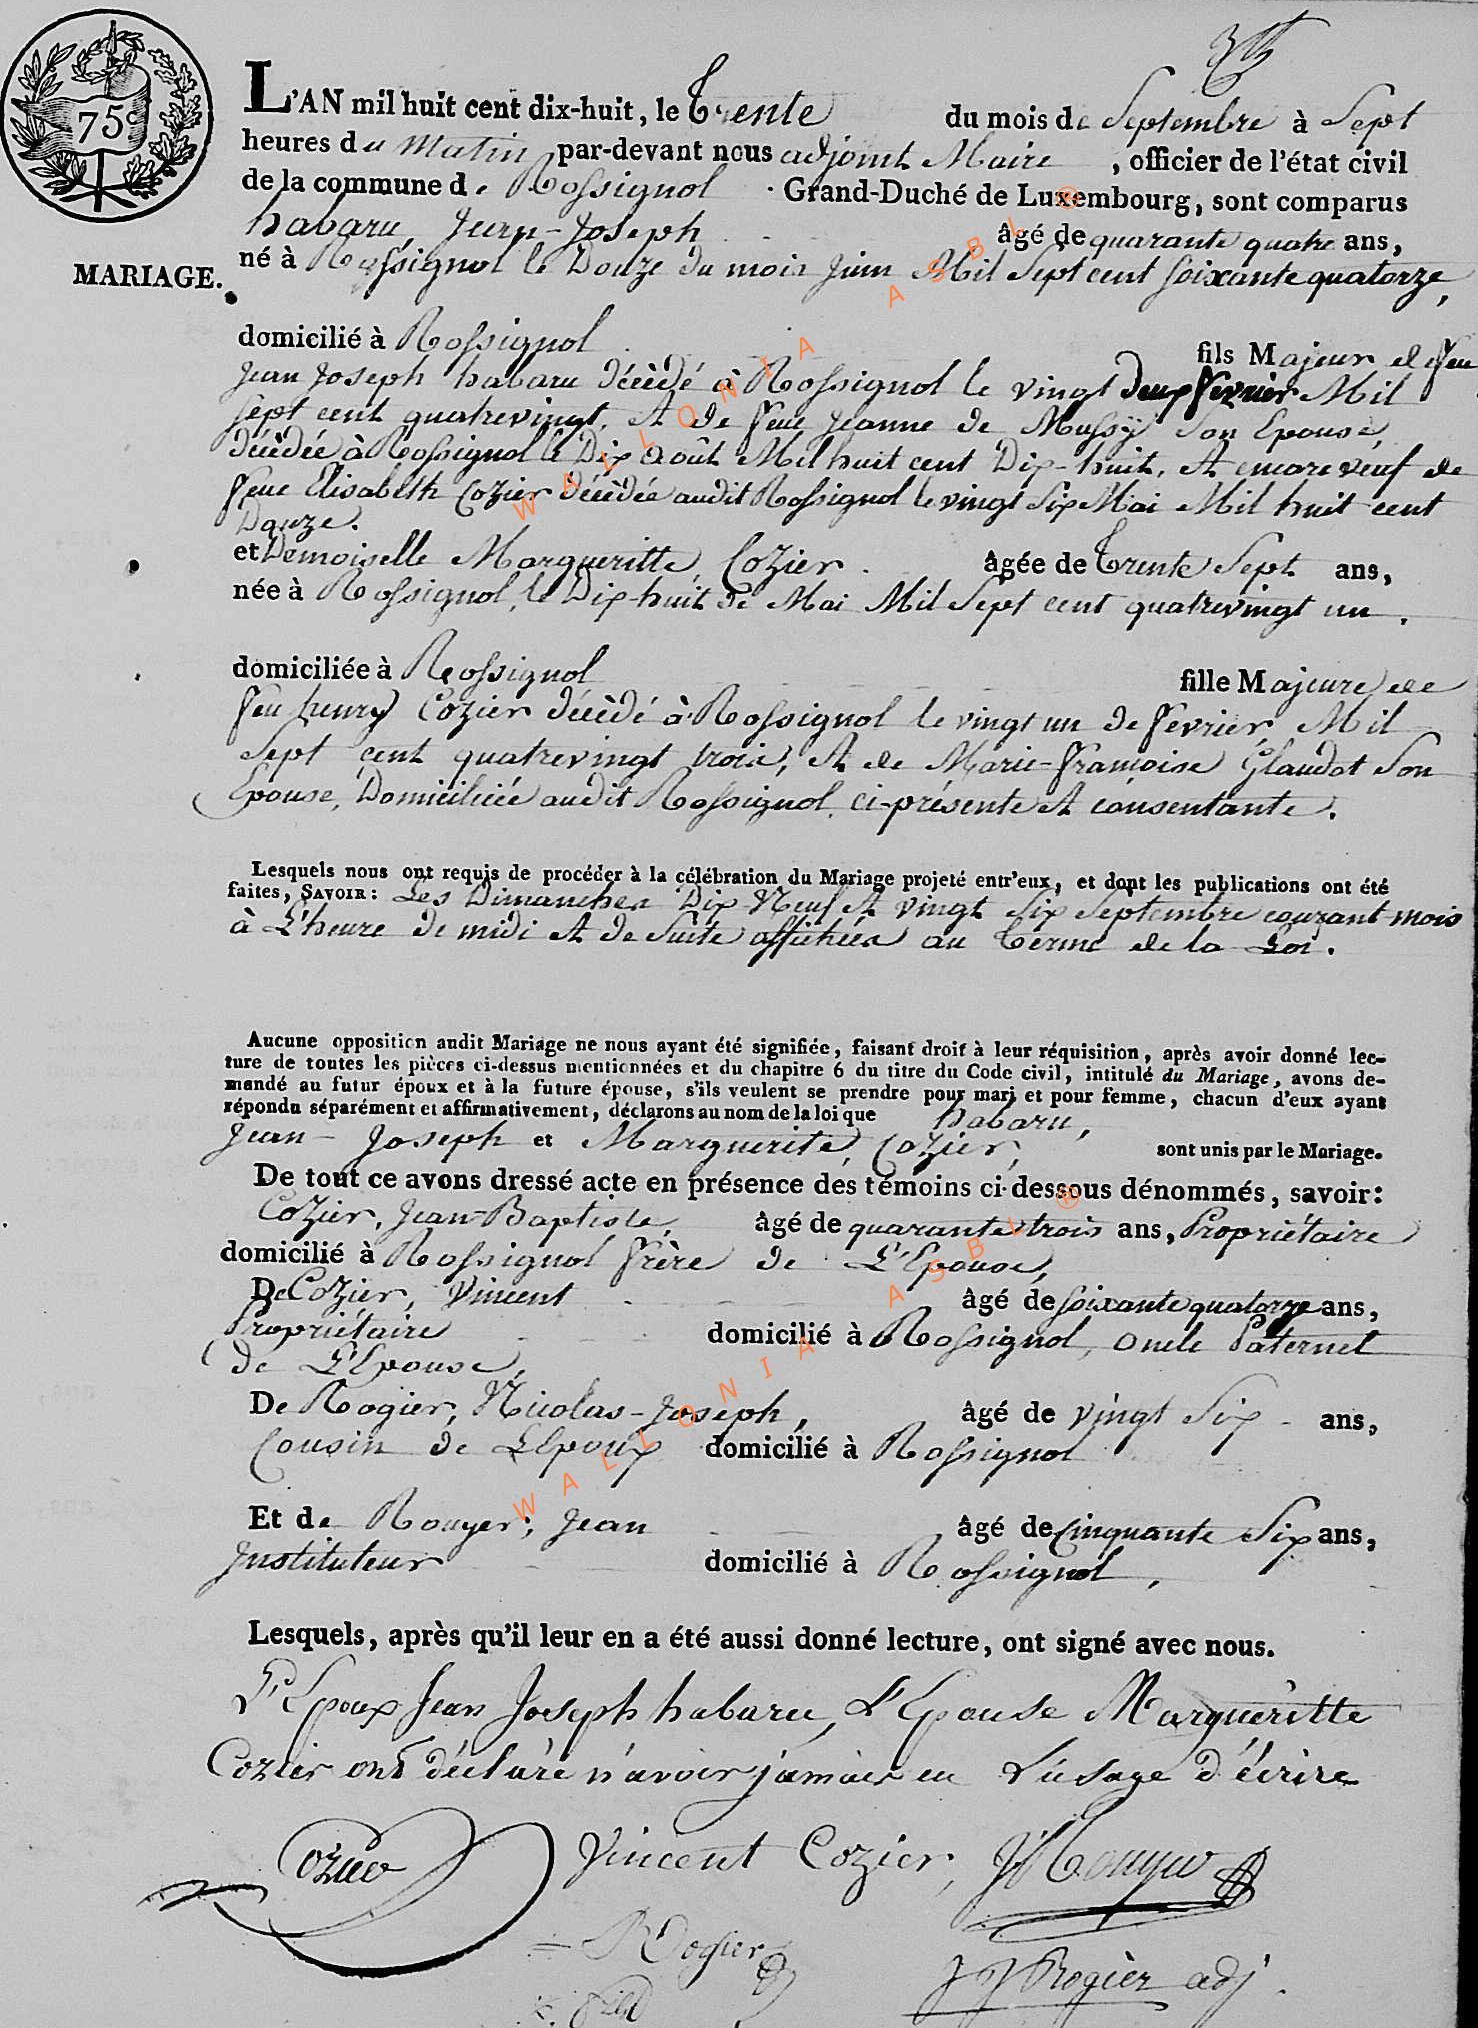 75c
L'AN mil huit cent dix-huit, le Trente du mois de Septembre à Sept
heures du Matin par-devant nous adjoint Maire, officier de l'état civil
de la commune de Rossignol Grand-Duché de Luxembourg, sont comparus
habaru, Jean-Joseph âgé de quarante quatre ans,
MARIAGE.
né à Rossignol le Douze du mois Juin Mil Sept cent soixante quatorze,
domicilié à Rossignol fils Majeur de feu
Jean Joseph habaru décèdé à Rossignol le vingt deux fevrier Mil
sept cent quatrevingt, et de feue Jeanne de Mussÿ Son Epouse,
décèdée à Rossignol le Dix août Mil huit cent Dix-huit, et encore veuf de
feue Elisabeth Cozier décèdée audit Rossignol le vingt Six Mai Mil huit cent
Douze.
et Demoiselle Margueritte Cozier âgée de Trente Sept ans,
née à Rossignol, le Dix huit de Mai Mil Sept cent quatrevingt un.
domiciliée à Rossignol fille Majeure de
feu henry Cozier décèdé à Rossignol le vingt un de fevrier Mil
Sept cent quatrevingt trois, et de Marie-françoise Glaudot Son
Epouse, Domiciliée audit Rossignol, ci-présente et consentante.
Lesquels nous ont requis de procéder à la célébration du Mariage projeté entr'eux, et dont les publications ont été
faites, SAVOIR : Les Dimanches Dix Neuf et vingt six Septembre courant mois
à L'heure de midi et de Suite affichées au Terme de la Loi.
Aucune opposition audit Mariage ne nous ayant été signifiée, faisant droit à leur réquisition, après avoir donné lec-
ture de toutes les pièces ci-dessus mentionnées et du chapitre 6 du titre du Code civil, intitulé du Mariage, avons de-
mandé au futur époux et à la future épouse, s'ils veulent se prendre pour mari et pour femme, chacun d'eux ayant
répondu séparément et affirmativement, déclarons au nom de la loi que habaru,
Jean-Joseph et Marguerite Cozier, sont unis par le Mariage.
De tout ce avons dressé acte en présence des témoins ci-dessous dénommés, savoir :
Cozier, Jean-Baptiste, âgé de quarante trois ans, Propriétaire
domicilié à Rossignol frère de L'Epouse,
De Cozier, Vincent âgé de soixante quatorze ans,
Propriétaire domicilié à Rossignol, oncle Paternel
de L'Epouse,
De Rogier, Nicolas-Joseph, âgé de vingt Six ans,
Cousin de L'Epoux domicilié à Rossignol
Et de Rouyer, Jean âgé de Cinquante Six ans,
Instituteur domicilié à Rossignol,
Lesquels, après qu'il leur en a été aussi donné lecture, ont signé avec nous.
L'Epoux Jean Joseph habaru, L'Epouse Margueritte
Cozier ont déclaré n'avoir jamais eu L'usage d'écrire
Cozier Vincent Cozier, Rouyer
Rogier
J J Rogier adj.
WALLONIA ASBL ®
WALLONIA ASBL ®